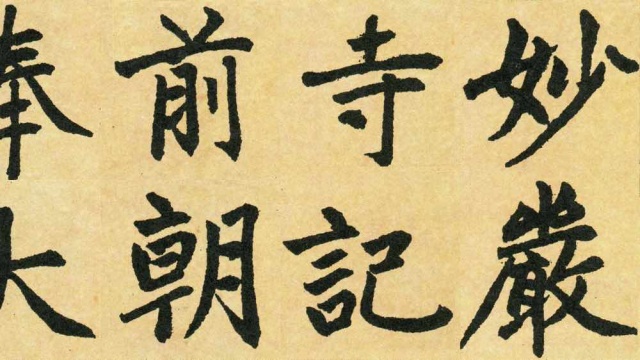 妙嚴
寺記
前朝
奉大